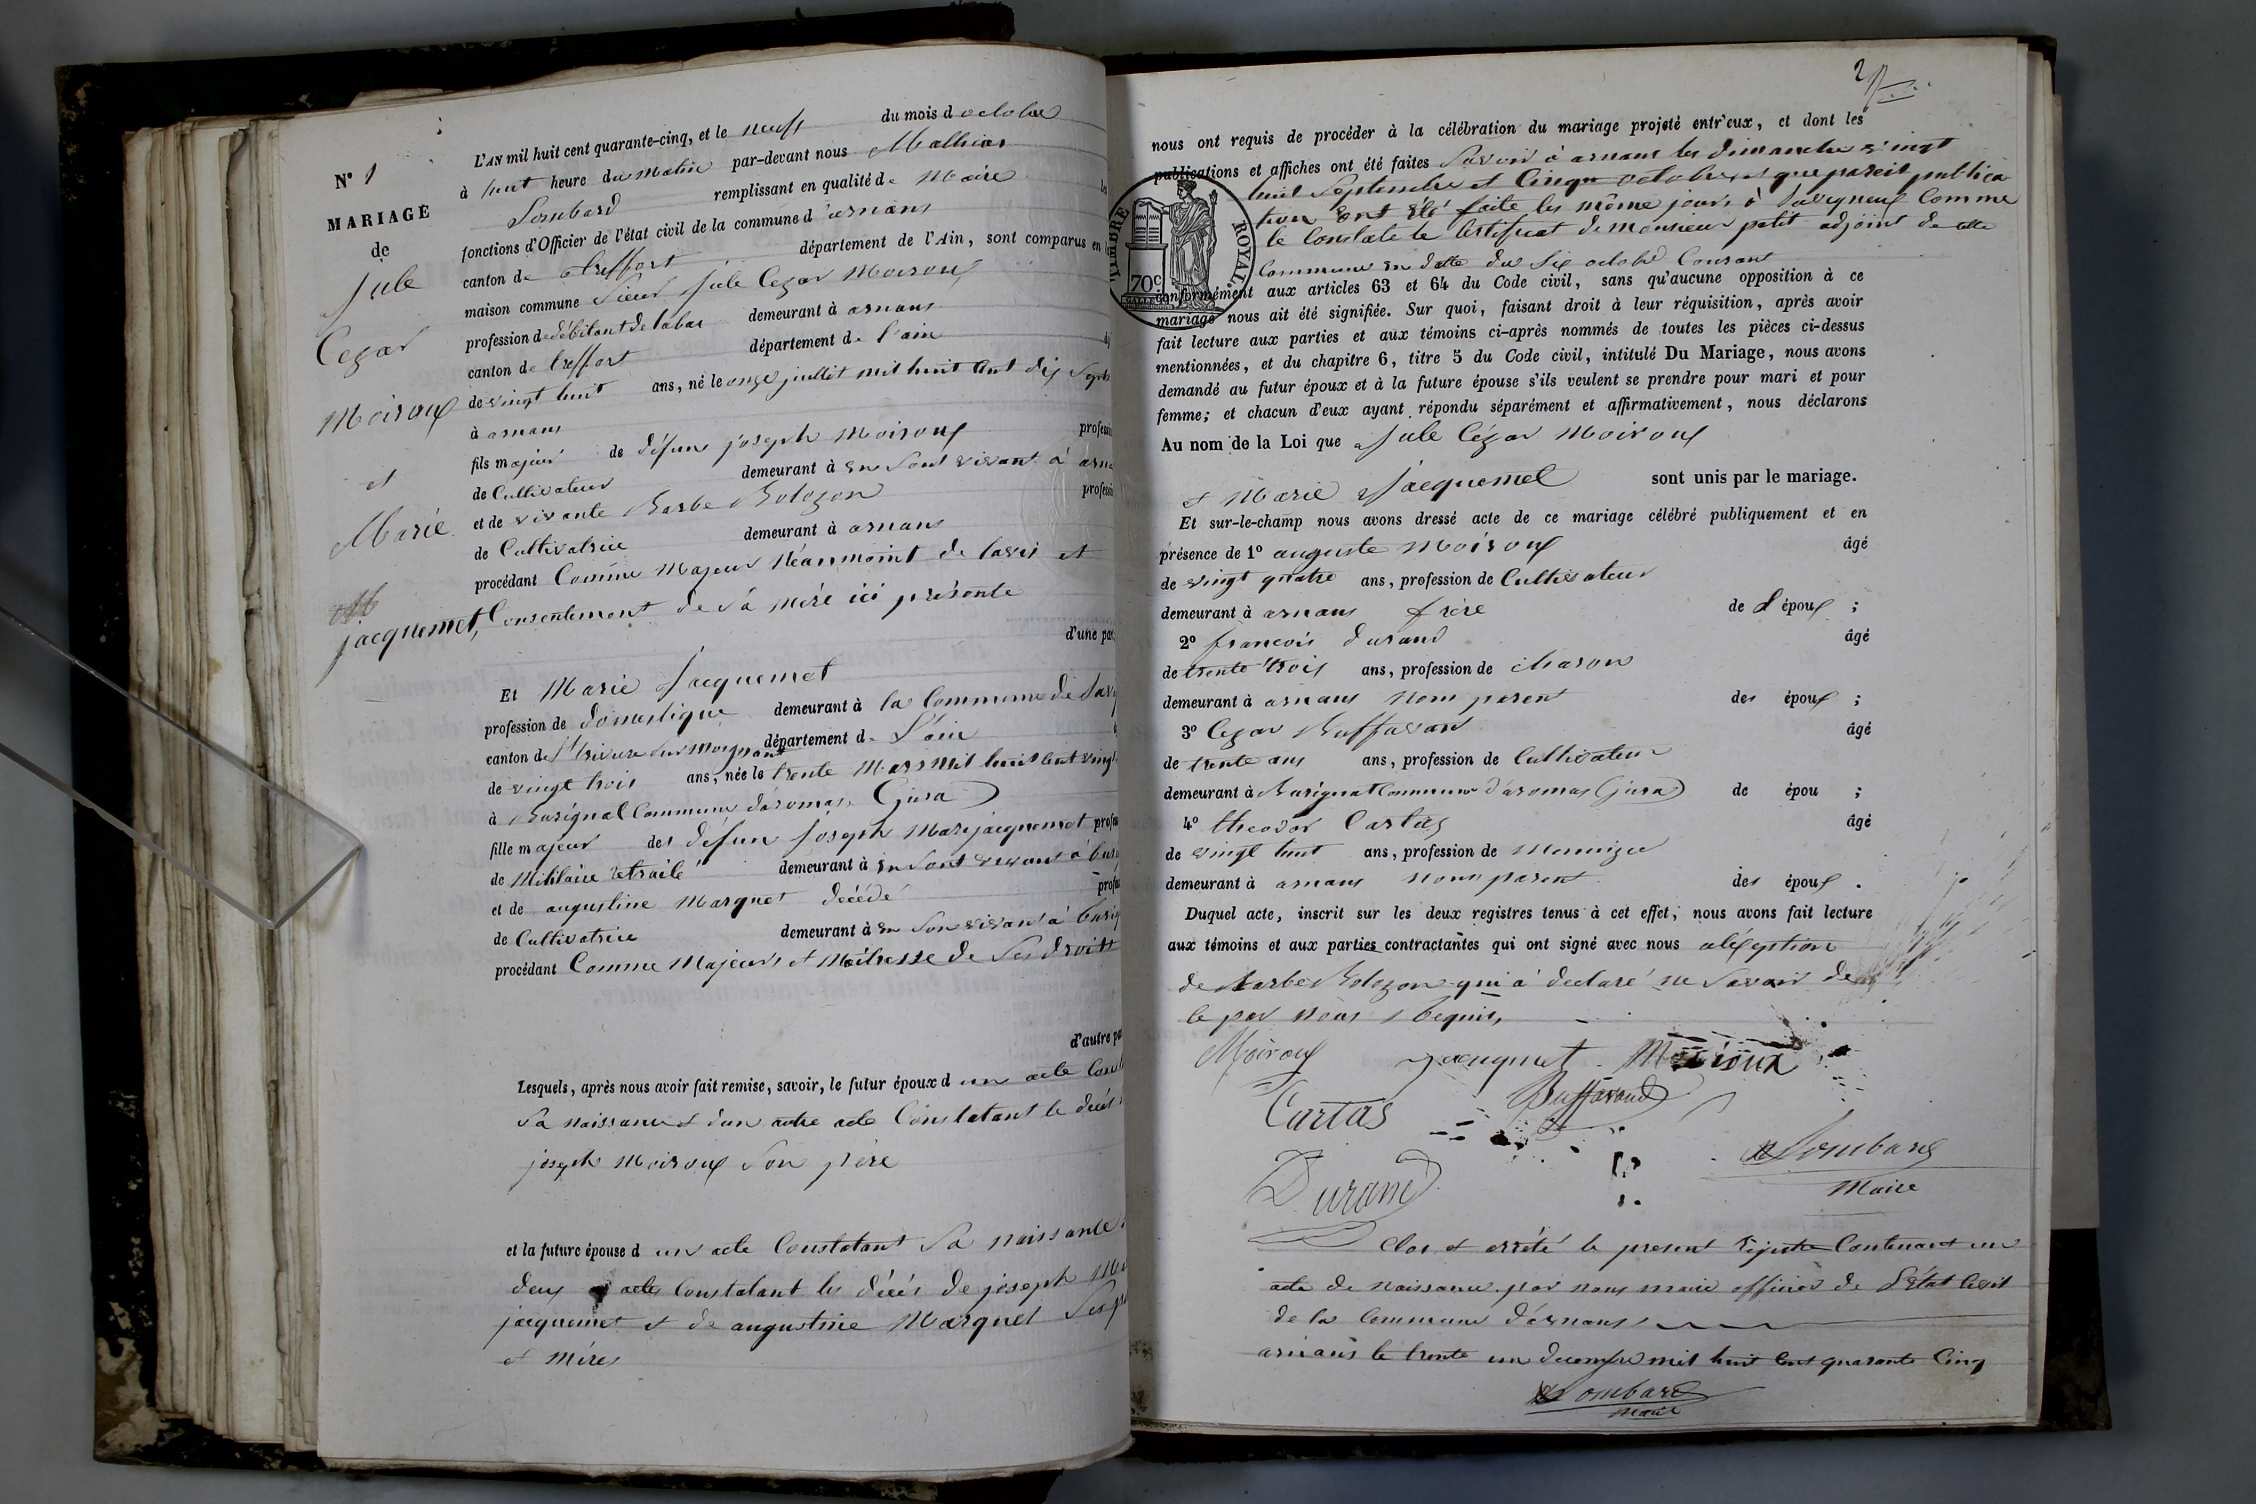 N° 1
MARIAGE
de
Jule
Cezar
Moiroux
et
Marie
jacquemet,
L'AN mil huit cent quarante-cinq, et le neuf du mois d octobre
à huit heure du Matin par-devant nous Mathias
Lombard remplissant en qualité de Maire
fonctions d'Officier de l'état civil de la commune d'arnans
canton de treffort département de l'Ain, sont comparus en
maison commune Sieur Jule Cezar Moiroux
profession de débitant de tabac demeurant à arnans
canton de treffort département de l'ain
de vingt huit ans, né le onze juillet mil huit cent dix sept
à arnans
fils majeur de défun joseph Moiroux
de Cultivateur demeurant à en sont vivant à
et de vivante Barbe Bolozon
de Cultivatrice demeurant à arnans
procédant Comme Majeur Néanmoint de lavis et
Consentement de sa mère ici présente
d'une
Et Marie Jacquemet
profession de domestique demeurant à la Commune de
canton de département de L'ain
de vingt trois ans, née le trente Mars mil huit cent vingt
à Burignat Commune d'aromas (jura)
fille majeur des défun joseph Mari jacquemet
de Militaire retraité demeurant à en sont vivant à
et de augustine Marquet décédé
de Cultivatrice demeurant à en son vivant à
procédant Comme Majeurs et Maîtresse de Ses droitt
d'autre
Lesquels, après nous avoir fait remise, savoir, le futur époux d un acte
Sa naissance et dun autre acte Constatant le décès
joseph Moiroux Son père
et la future épouse d un acte Constatant Sa naissance
deux acte Constatant les décès de joseph
jacquemet et de augustine Marquet
et mères
nous ont requis de procéder à la célébration du mariage projeté entr'eux, et dont les
publications et affiches ont été faites Savoir à arnans les dimanche vingt
huit Septembre et Cinque octobre et que pareil publica
tion ont été faite les même jours à Comme
le Constate le Certificat de monsieur petit adjoint de
Commune en datte du Six octobre Courant
TIMBRE ROYAL.
70c.
conformément aux articles 63 et 64 du Code civil, sans qu'aucune opposition à ce
mariage nous ait été signifiée. Sur quoi, faisant droit à leur réquisition, après avoir
fait lecture aux parties et aux témoins ci-après nommés de toutes les pièces ci-dessus
mentionnées, et du chapitre 6, titre 5 du Code civil, intitulé Du Mariage, nous avons
demandé au futur époux et à la future épouse s'ils veulent se prendre pour mari et pour
femme; et chacun d'eux ayant répondu séparément et affirmativement, nous déclarons
Au nom de la Loi que Jule Cézar Moiroux
et Marie Jacquemet sont unis par le mariage.
Et sur-le-champ nous avons dressé acte de ce mariage célébré publiquement et en
présence de 1° auguste Moiroux âgé
de vingt quatre ans, profession de Cultivateur
demeurant à arnans frère de L époux ;
2° francois durand âgé
de trente trois ans, profession de charon
demeurant à arnans nom parent des époux ;
3° Cezar Buffavand âgé
de trente ans ans, profession de Cultivateur
demeurant à Burignat Commune d'aromas (jura) de épou ;
4° theodor Cartas âgé
de vingt huit ans, profession de Menuizie
demeurant à arnans nom parent des époux .
Duquel acte, inscrit sur les deux registres tenus à cet effet, nous avons fait lecture
aux témoins et aux parties contractantes qui ont signé avec nous aléxeption
de Barbe Bolozon qui a declaré ne Savoir de
le par nous requis,
Moiroux Jacqumet Moiroux
Cartas Buffavand
Durand Lombard
Maire
Clos et arrété le present registre Contenant un
acte de naissance par nous maire officier de L'état Civil
de la Commune d'arnans
arnans le trente un decembre mil huit cent quarante Cinq
Lombard
Maire